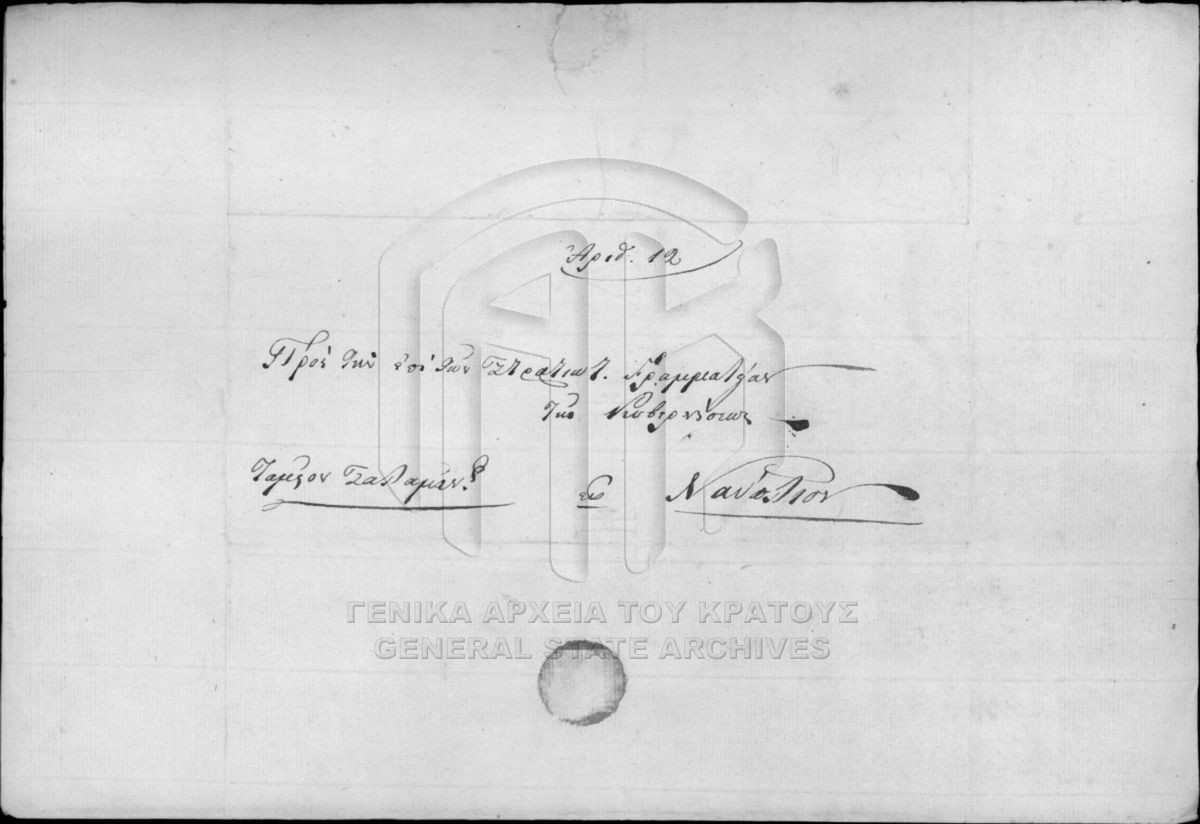 Ἀριθ. 12
Πρὸς τὴν ἐπὶ τῶν Στρατιωτ. Γραμματείαν
τῆς Κυβερνήσεως
Ταμεῖον Σαλαμῖν.ος εἰς Ναύπλιον
ΓΕΝΙΚΑ ΑΡΧΕΙΑ ΤΟΥ ΚΡΑΤΟΥΣ
GENERAL STATE ARCHIVES